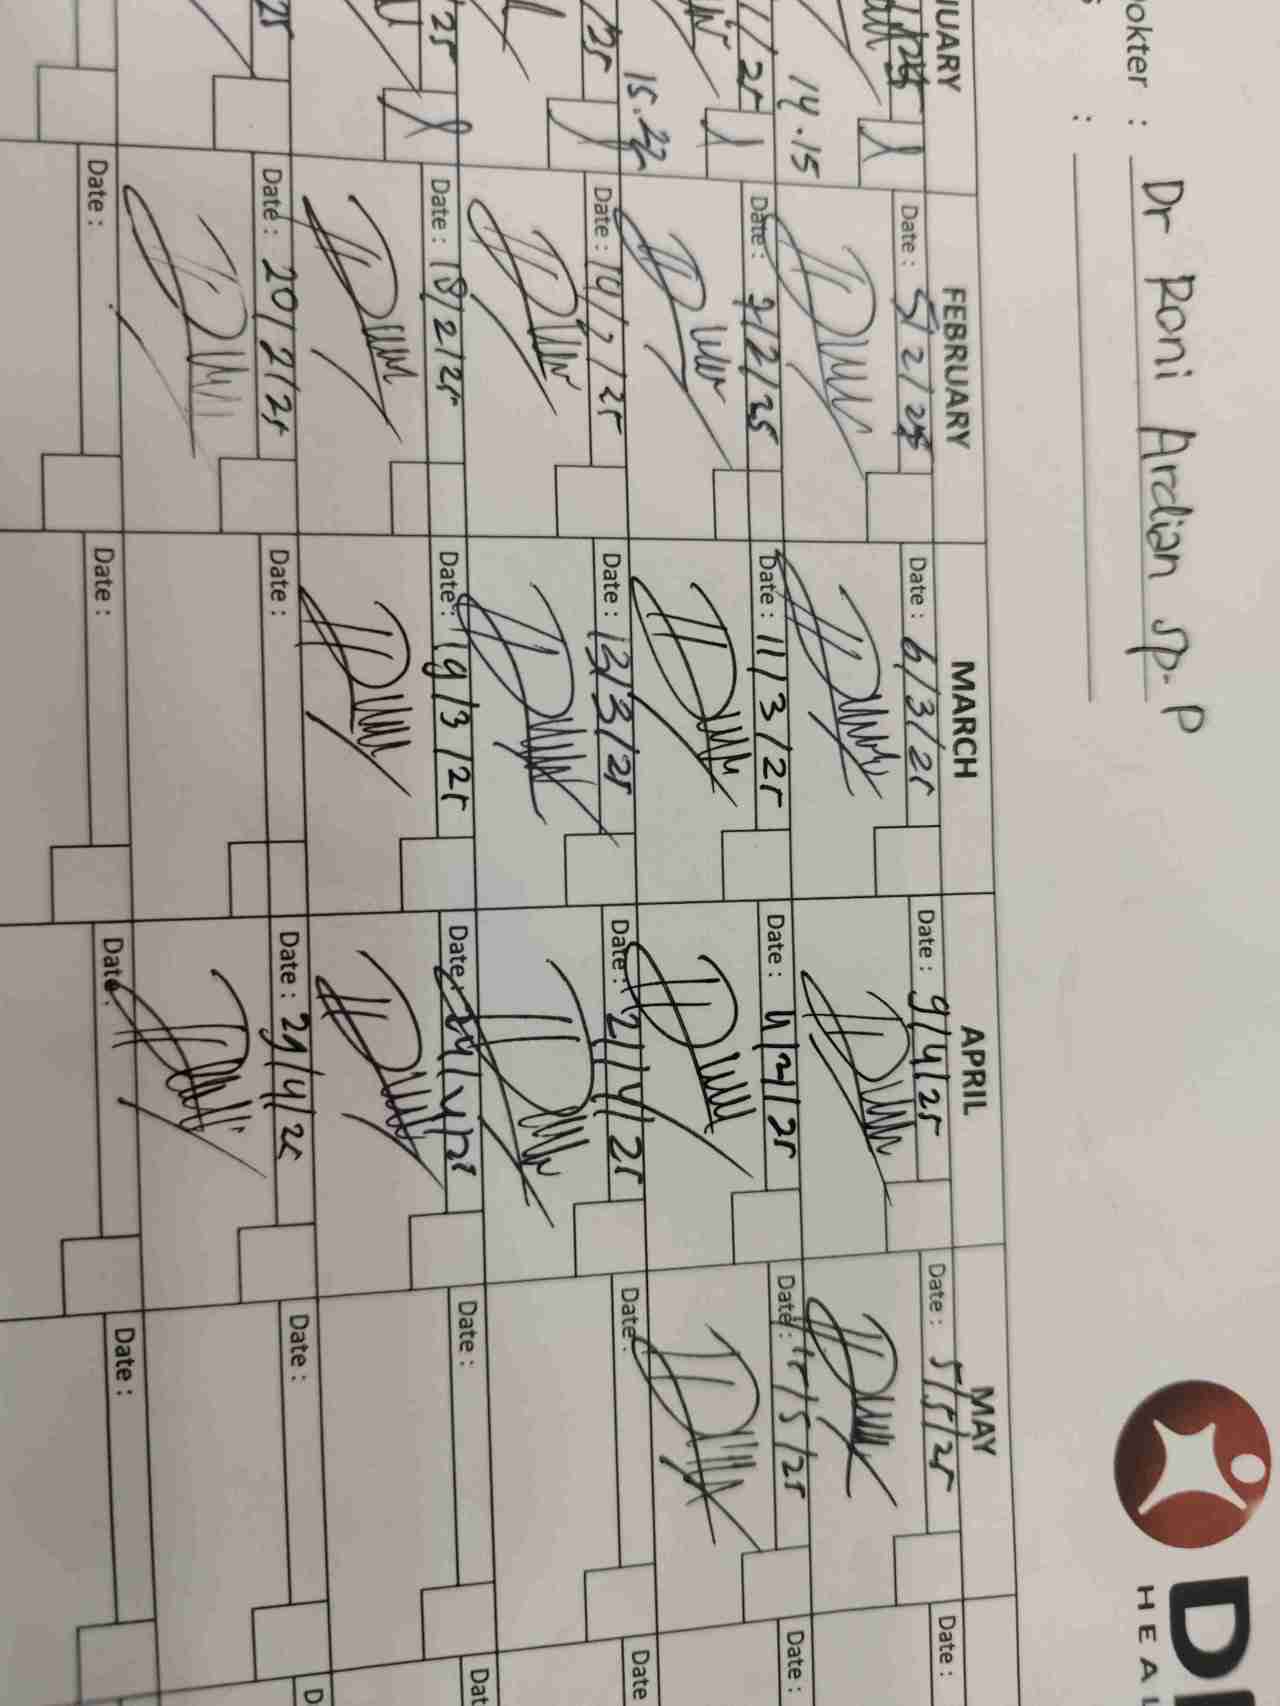 Dokter : Dr Roni Ardian sp. P
:
DI
HEAL
JANUARY FEBRUARY MARCH APRIL MAY
Date : 5/2/25 Date : 6/3/25 Date : 9/4/25 Date : 5/5/25 Date :
14.15
1/25 Date : 7/2/25 Date : 11/3/25 Date : 4/25 Date : 15/5/25 Date :
15.22
/25 Date : 10/2/25 Date : 13/3/25 Date : 21/4/25 Date : Date
/25 Date : 18/2/25 Date : 19/3/25 Date : 24/4/25 Date : Dat
25 Date : 20/2/25 Date : Date : 29/4/25 Date : D
Date : Date : Date : Date :